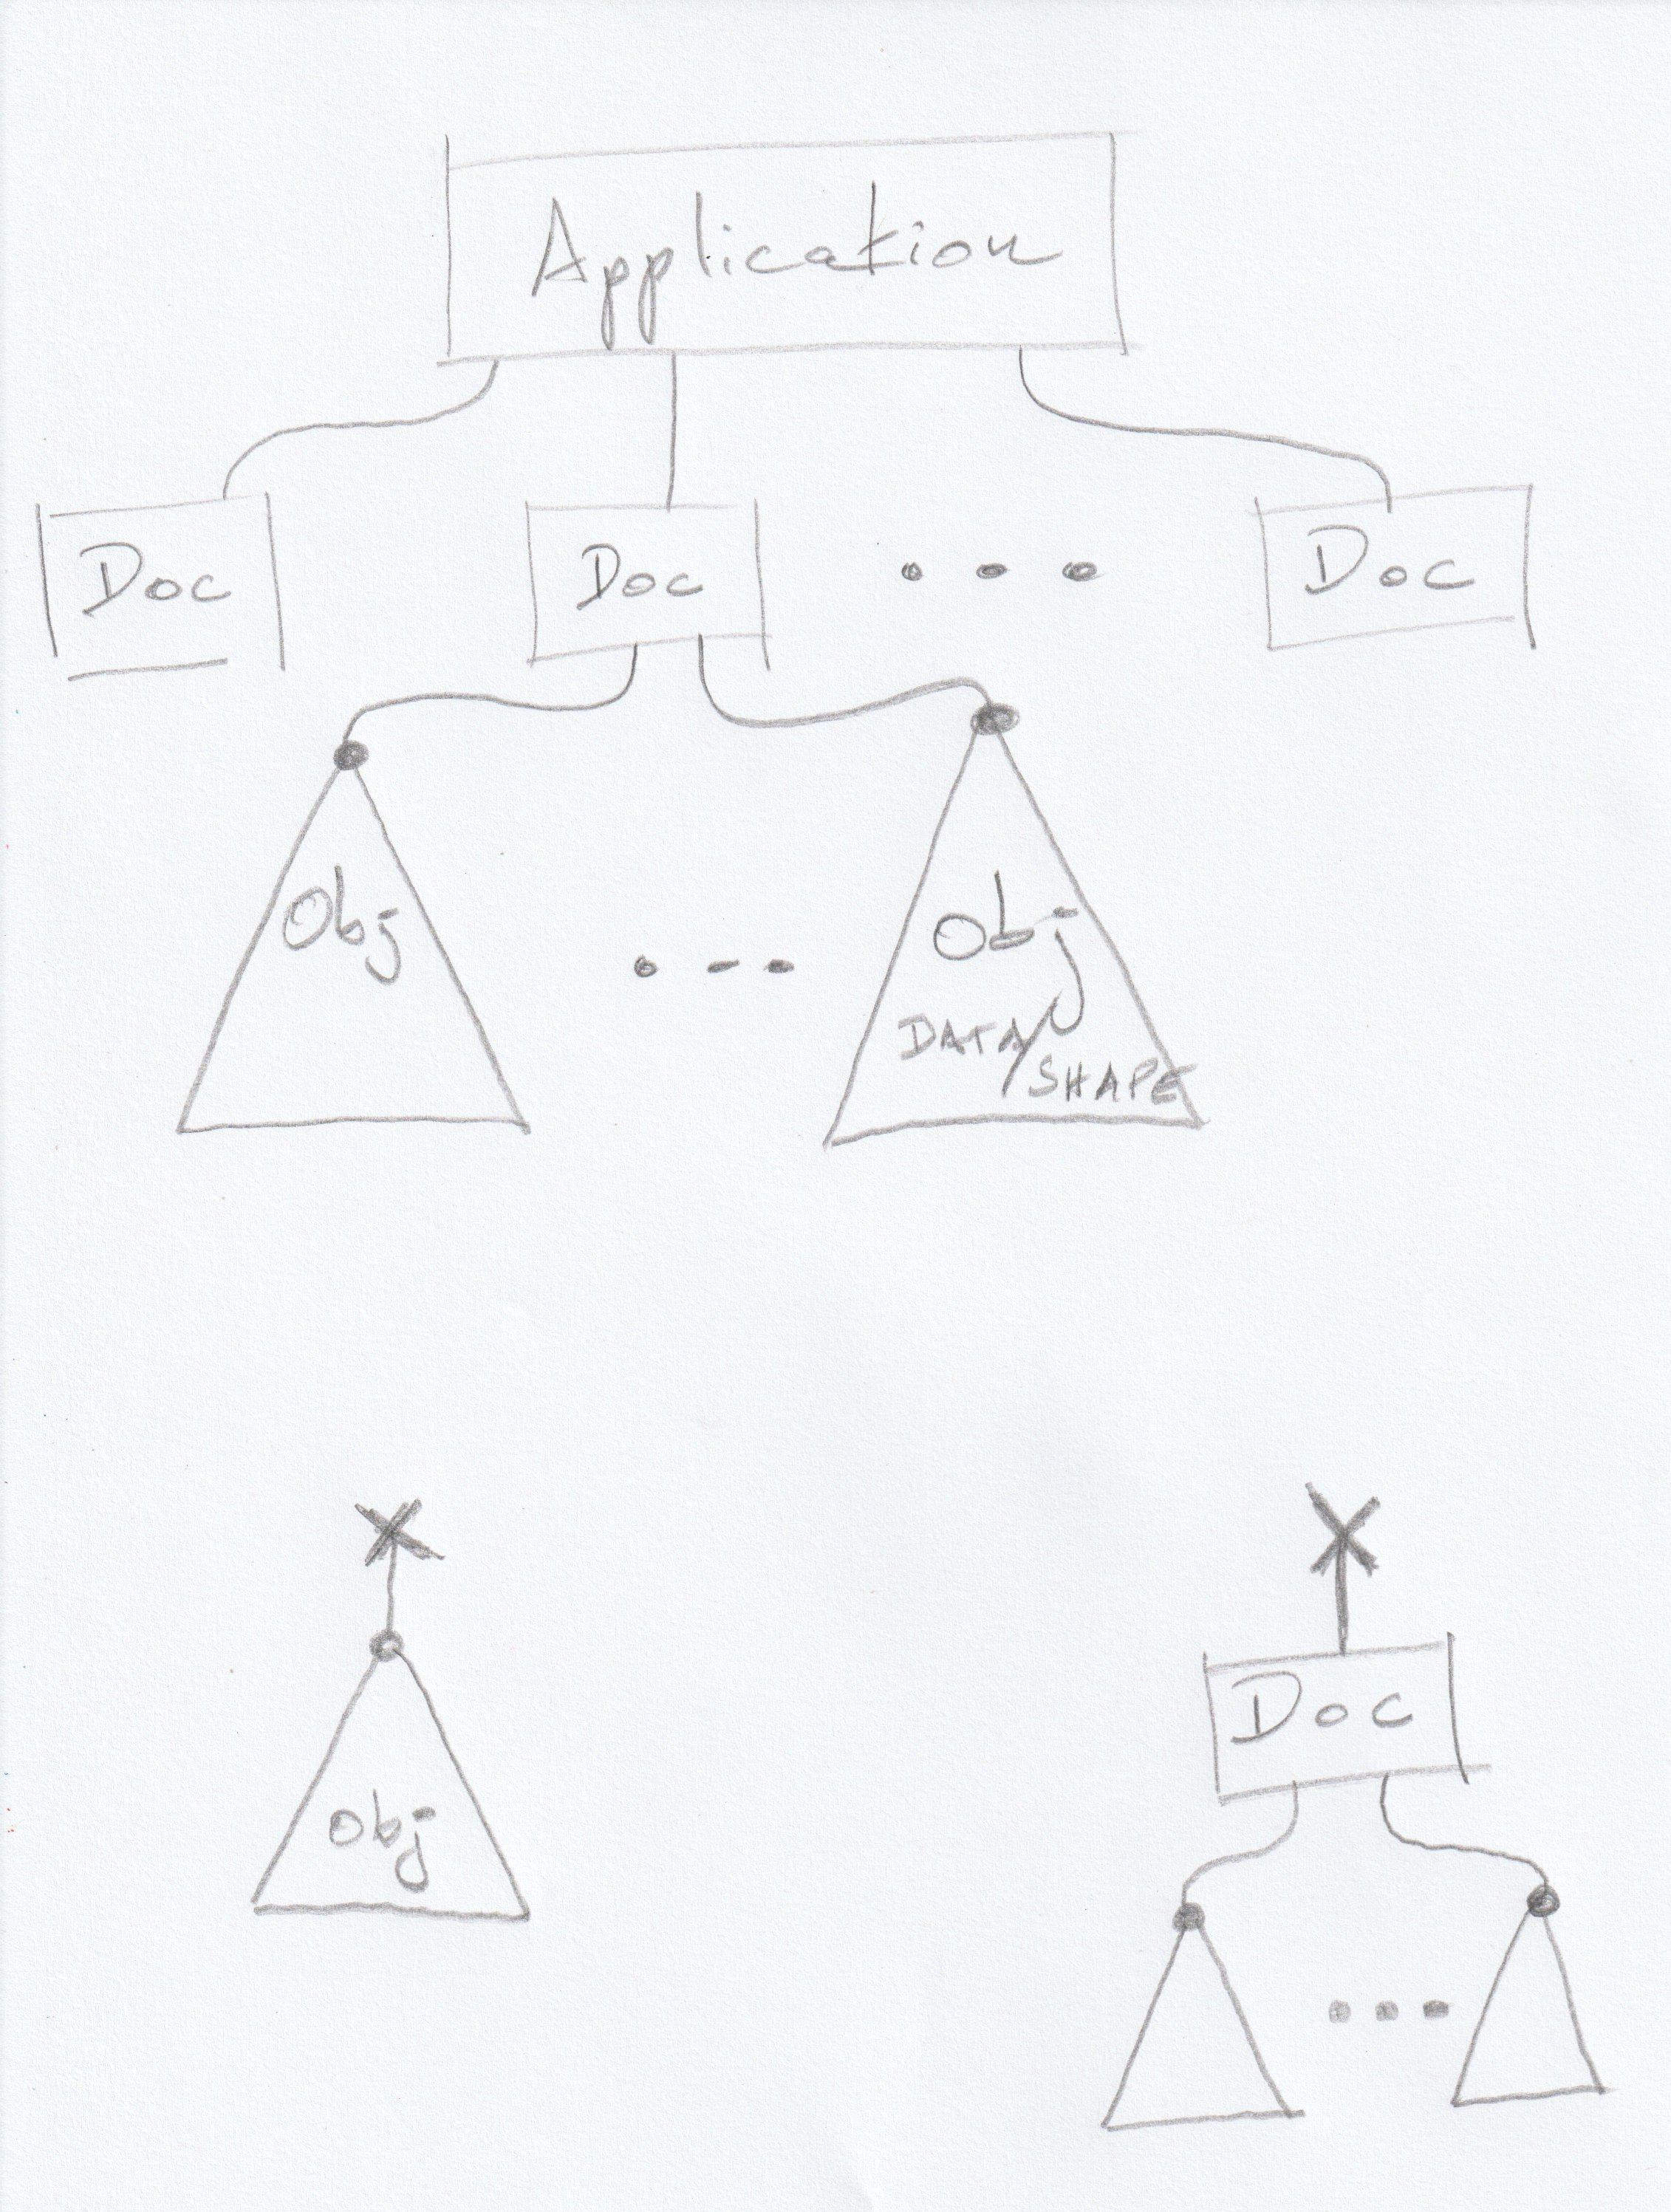 Application
Doc Doc ... Doc
Obj Obj
DATA/
SHAPE
Doc
obj